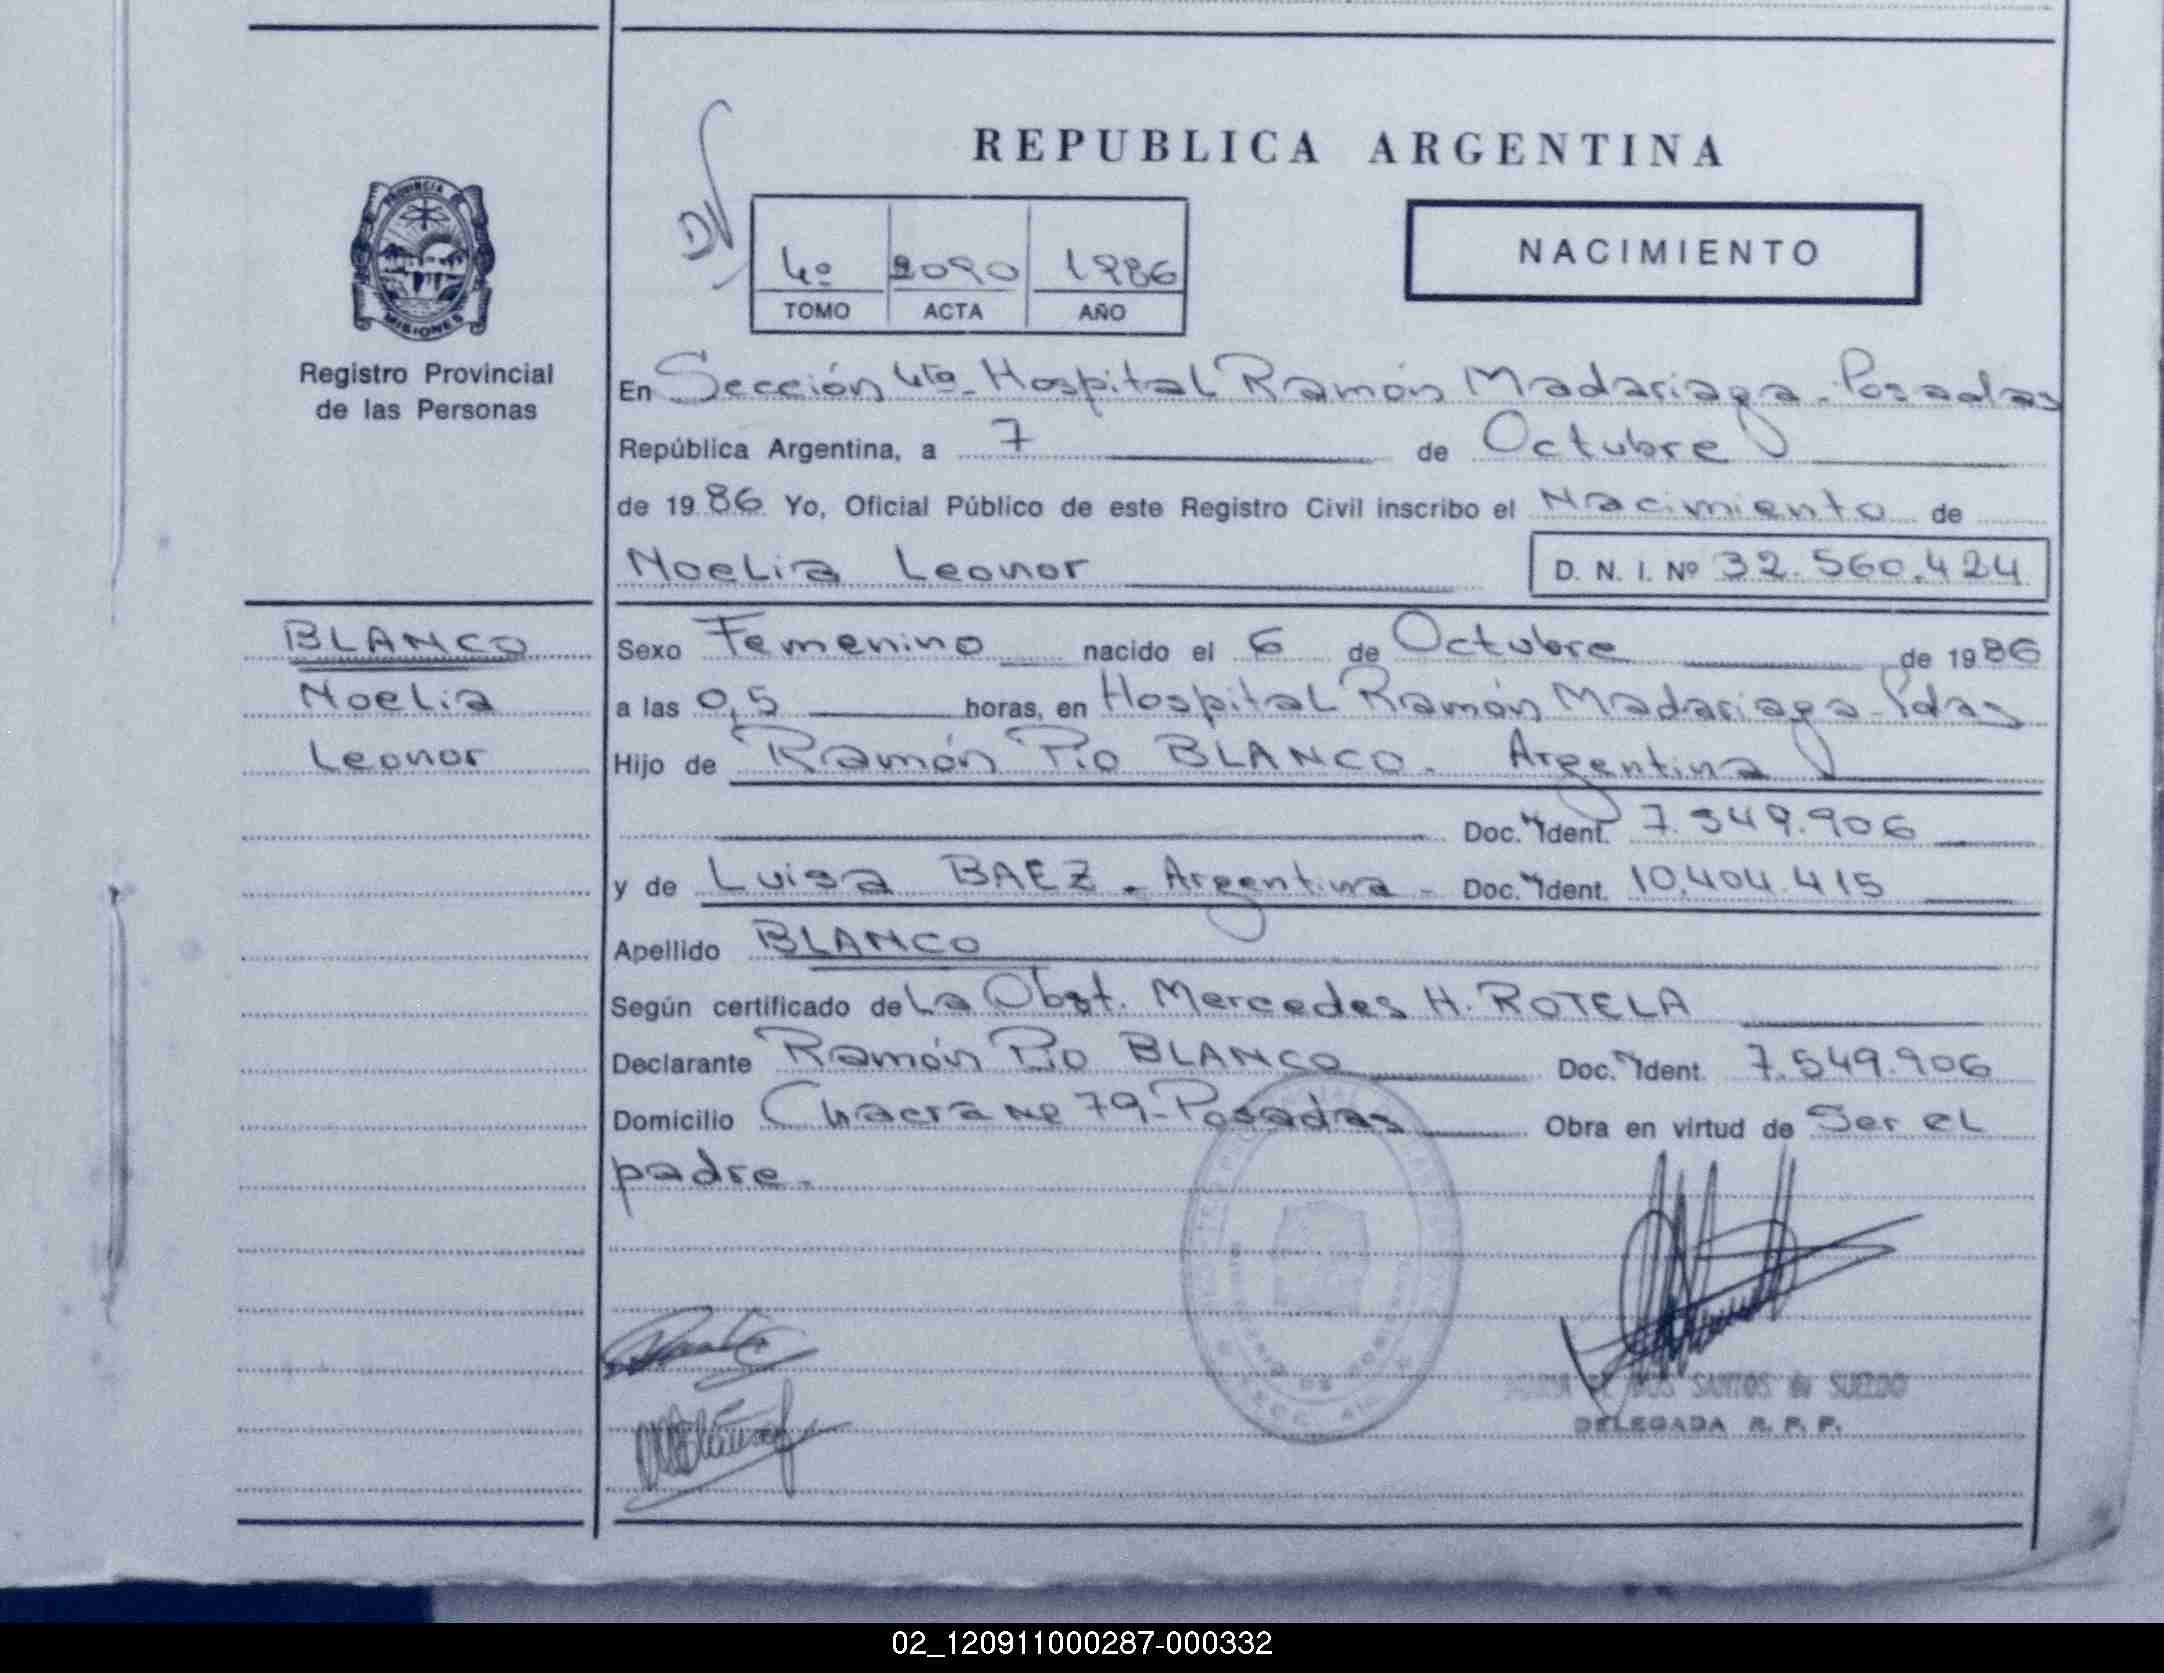 REPUBLICA ARGENTINA
NACIMIENTO
4º 2090 1986
TOMO ACTA AÑO
PROVINCIA DE MISIONES
Registro Provincial
de las Personas
En Sección 4ta. Hospital Ramón Madariaga - Posadas
República Argentina, a 7 de Octubre
de 1986 Yo, Oficial Público de este Registro Civil inscribo el Nacimiento de
Noelia Leonor D. N. I. Nº 32.560.424
BLANCO
Noelia
Leonor
Sexo Femenino nacido el 6 de Octubre de 1986
a las 0,5 horas, en Hospital Ramón Madariaga - Pdas
Hijo de Ramón Pio BLANCO. Argentina
Doc. Ident. 7.549.906
y de Luisa BAEZ. Argentina - Doc. Ident. 10.404.415
Apellido BLANCO
Según certificado de La Obst. Mercedes H. ROTELA
Declarante Ramón Pio BLANCO Doc. Ident. 7.549.906
Domicilio Chacra Nº 79 - Posadas Obra en virtud de Ser el
padre.
DOS SANTOS de SUELDO
DELEGADA R. P. P.
02_120911000287-000332